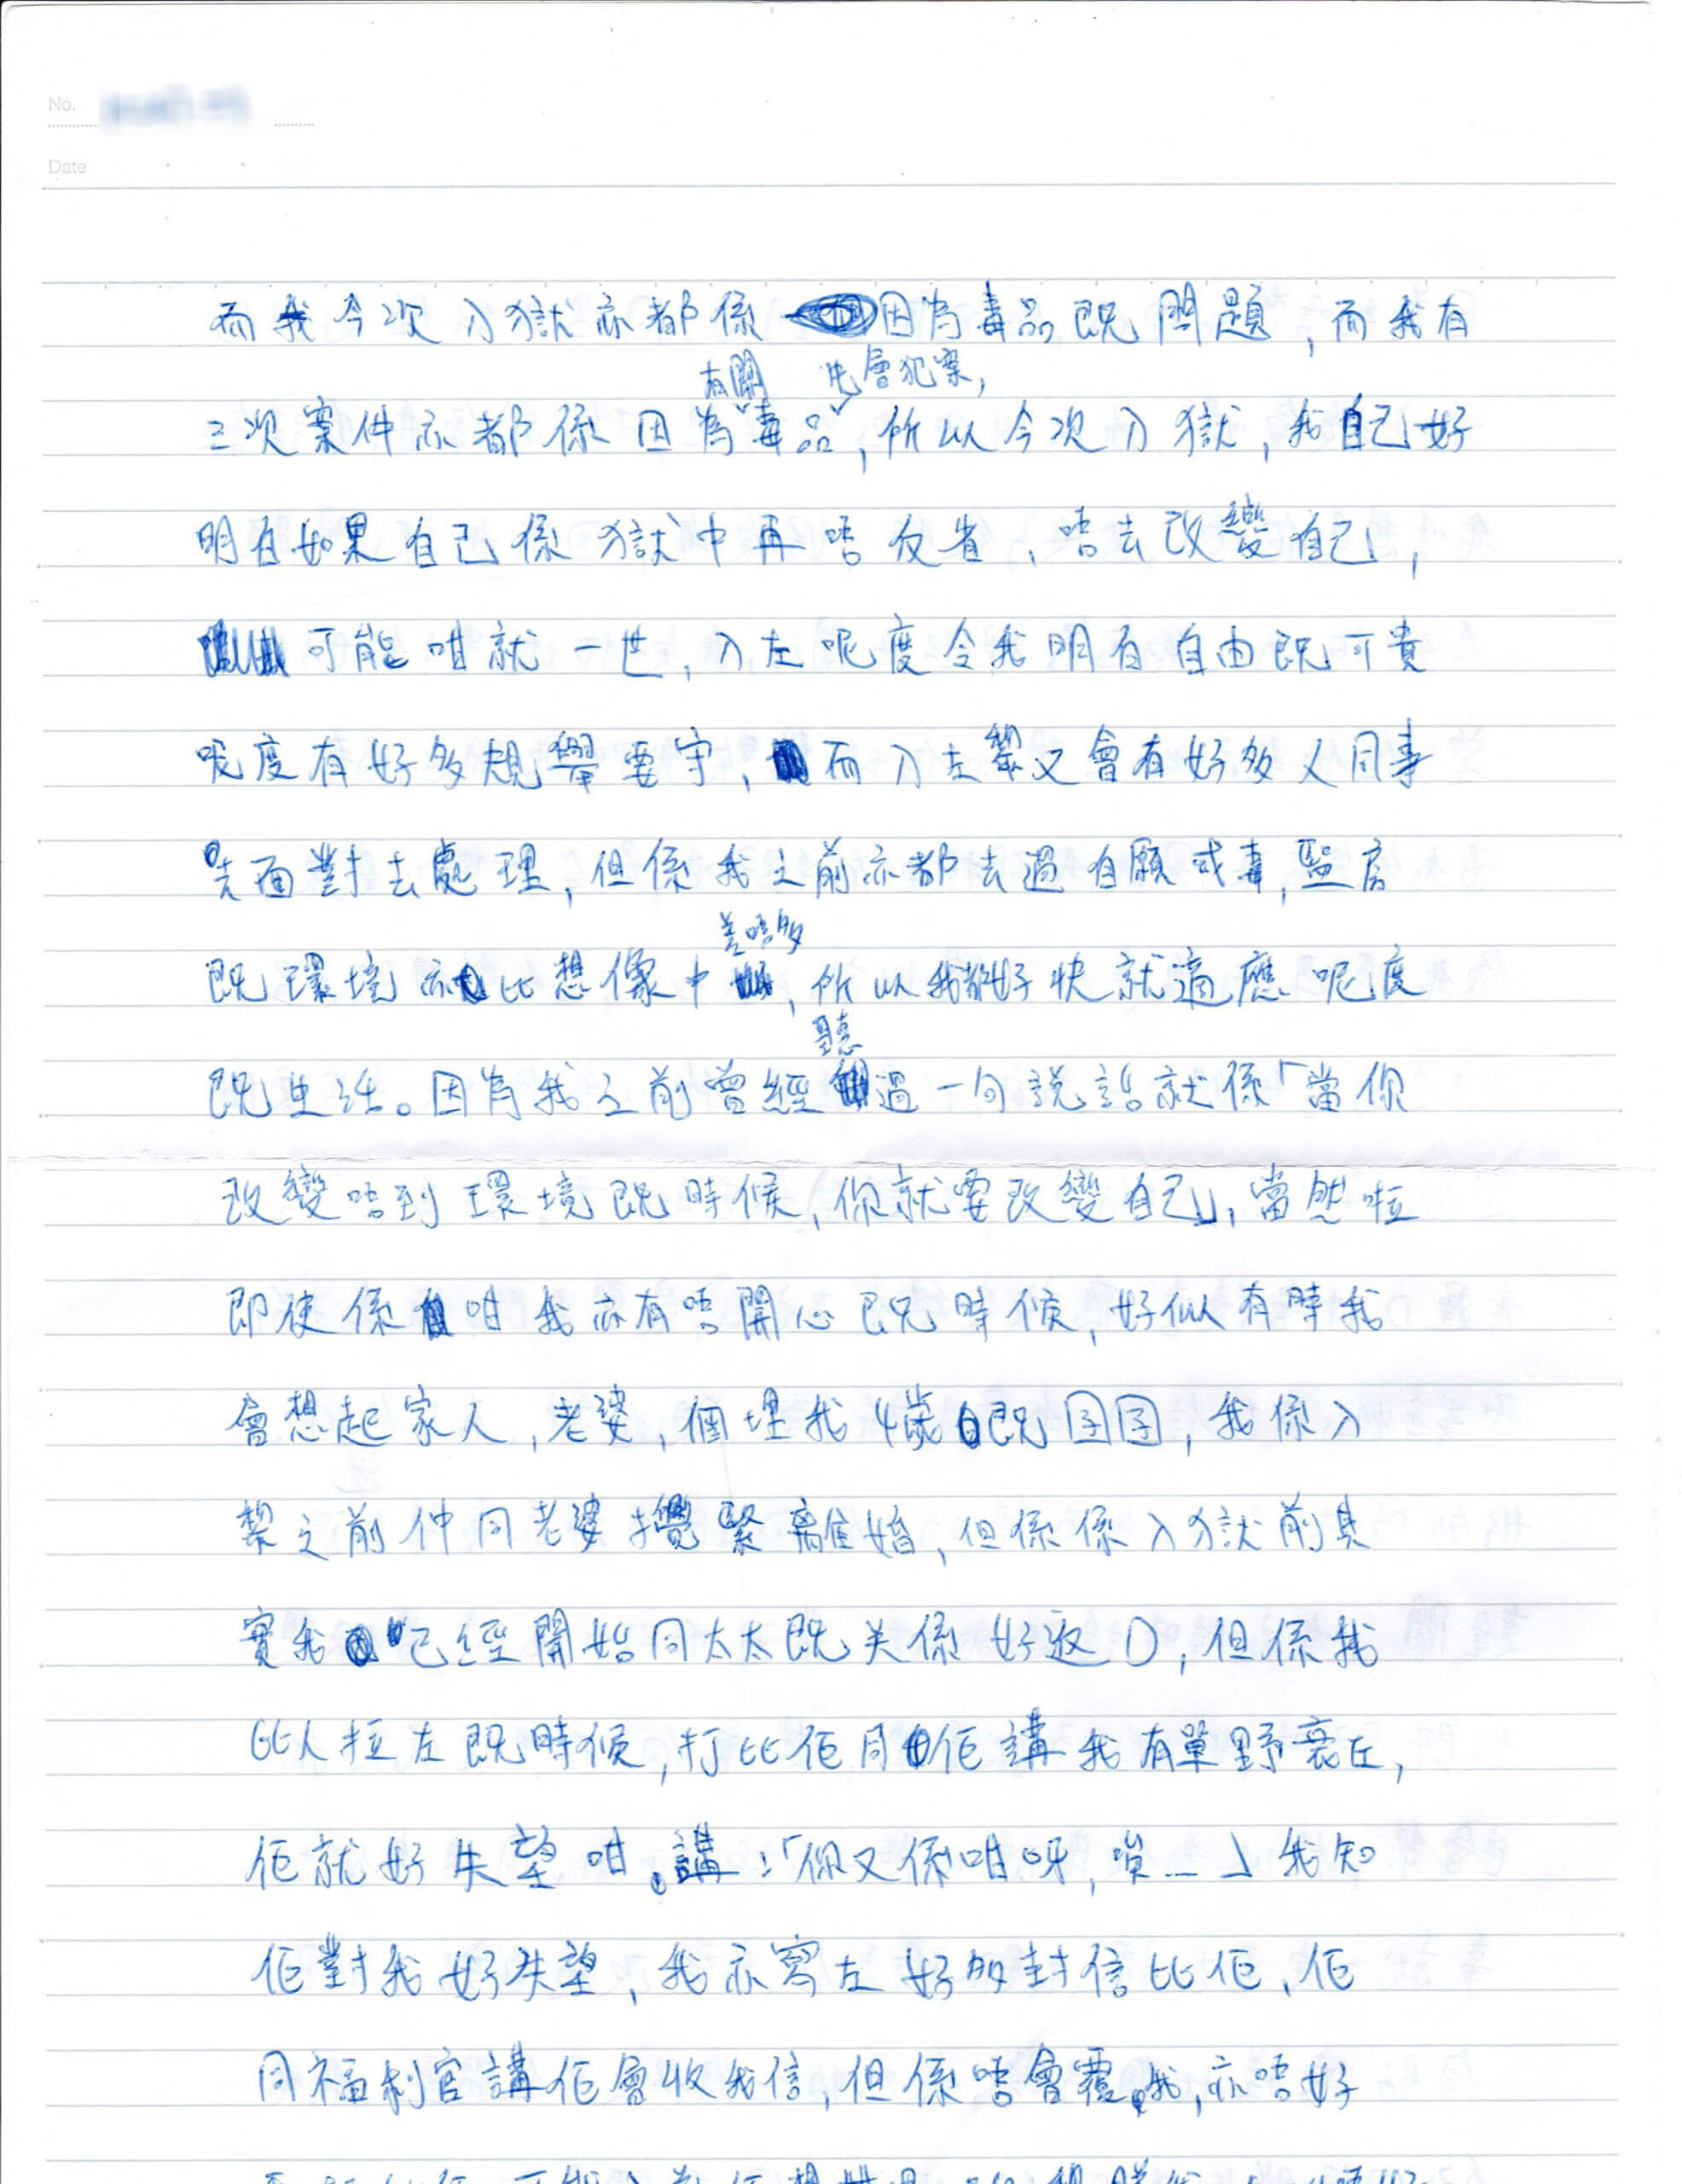 No.
Date
而我今次入獄亦都係因為毒品既問題,而我有
有關 先會犯案,
三次案件亦都係因為毒品,所以今次入獄,我自己好
明白如果自己係獄中再唔反省、唔去改變自己,
可能咁就一世,入左呢度令我明白自由既可貴
呢度有好多規舉要守,而入左黎又會有好多人同事
要面對去處理,但係我之前亦都去過自願戒毒,監房
差唔多
既環境亦比想像中,所以我都好快就適應呢度
聽
既生活。因為我之前曾經過一句說話就係「當你
改變唔到環境既時候,你就要改變自己」,當然啦
即使係咁我亦有唔開心既時候,好似有時我
會想起家人,老婆,個埋我4歲既囝囝,我係入
黎之前仲同老婆攪緊離婚,但係係入獄前其
實我已經開始同太太既关係好返D,但係我
比人拉左既時候,打比佢同佢講我有單野衰左,
佢就好失望咁講:「你又係咁呀,唉...」我知
佢對我好失望,我亦寫左好多封信比佢,佢
同福利官講佢會收我信,但係唔會覆我,亦唔好